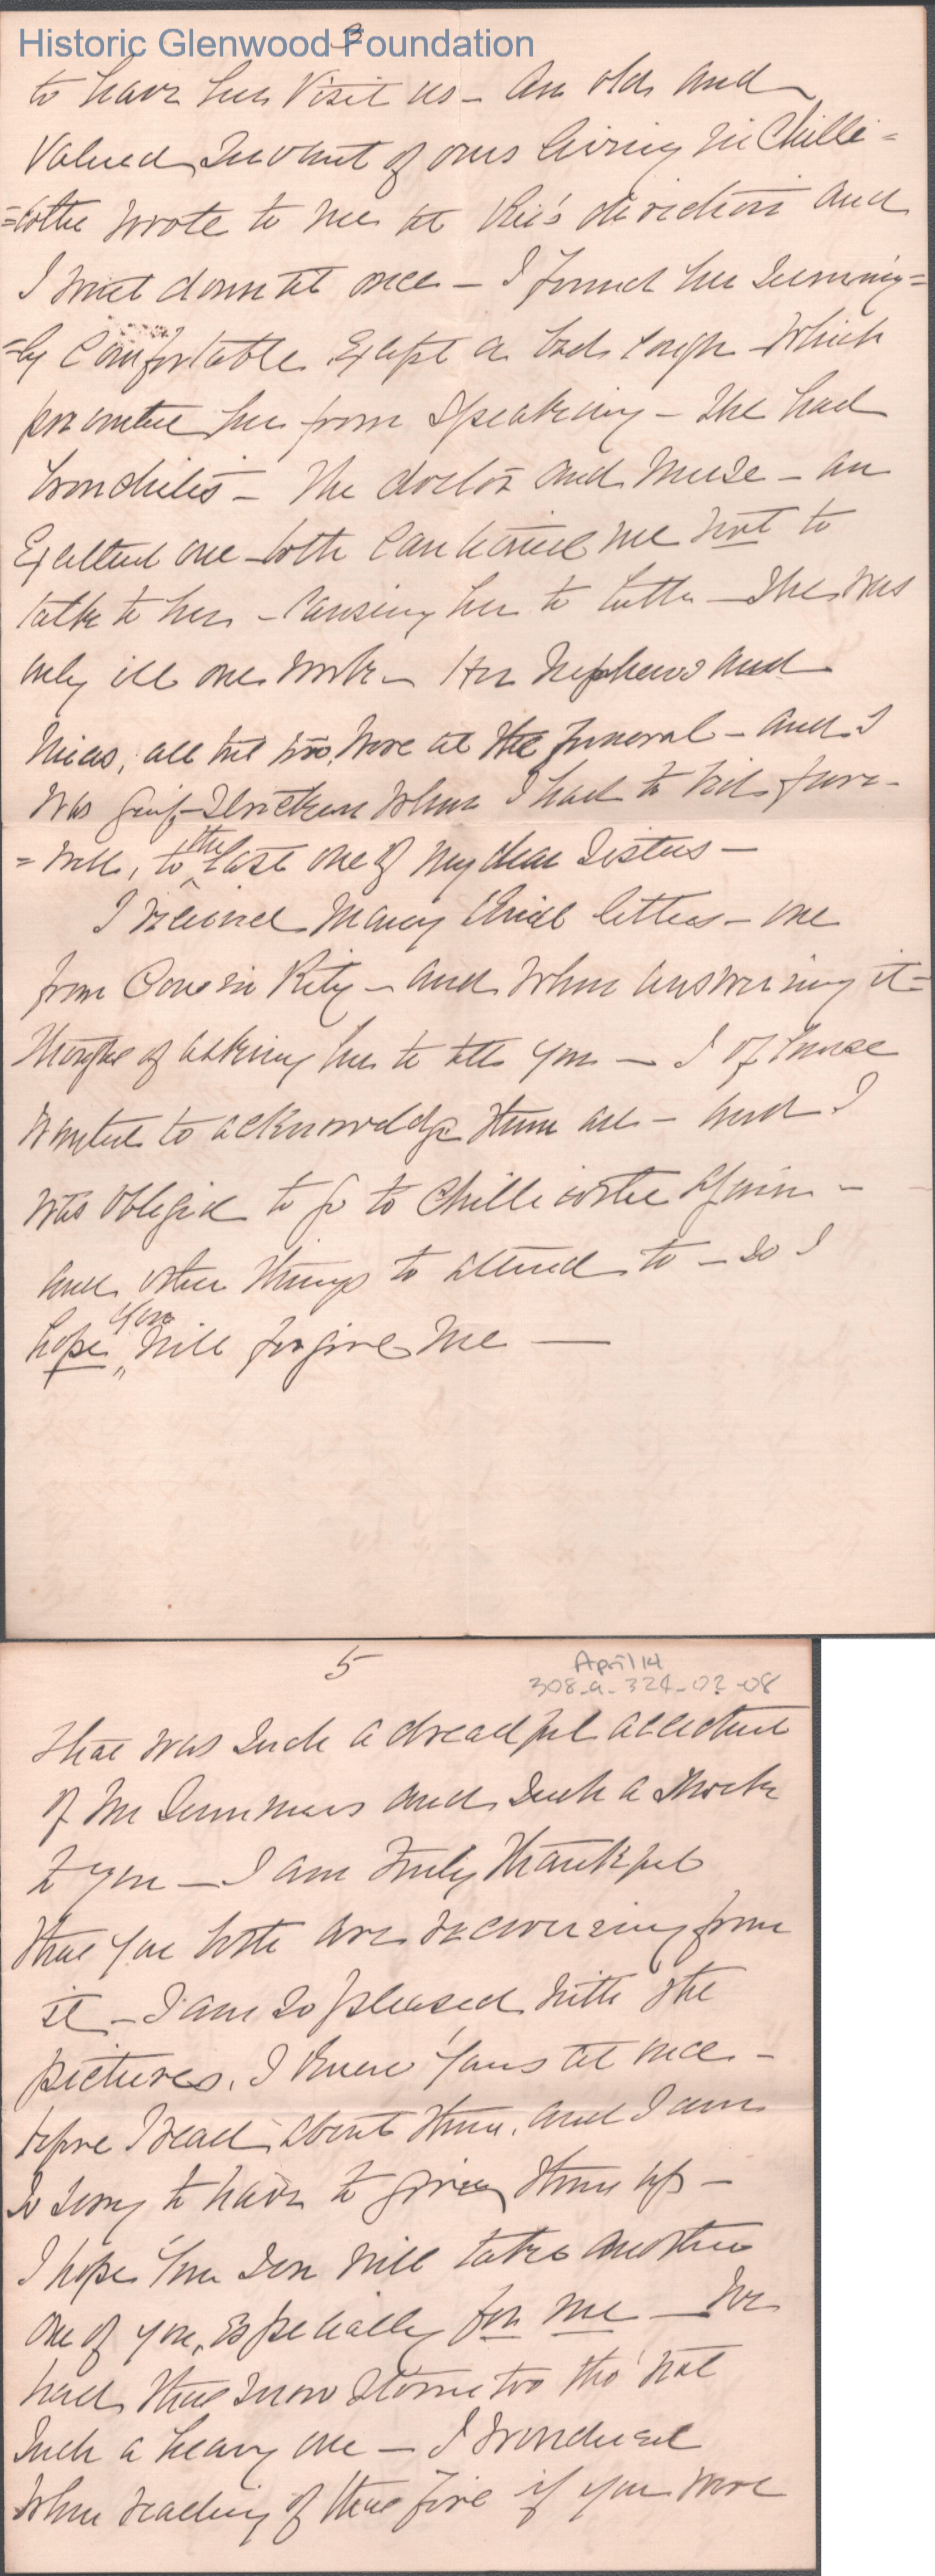 Historic Glenwood Foundation
3
to have her visit us - An old and
valued servant of ours living in Chilli=
=cothe wrote to me at direction and
I went down at once - I found her seeming=
=ly comfortable except a bad cough which
prevented her from speaking - She had
bronchitis - The doctor and nurse - an
excellent one - both cautioned me not to
talk to her - causing her to - She was
only ill one week - Her nephews and
nieces, all but two, were at the funeral - and I
was grief-stricken when I had to bid fare-
=well, to the last one of my dear sisters -
I received many kind letters - one
from Cousin Kity - and when answering it -
thought of asking her to tell you - I of course
wanted to acknowledge them all - and I
was obliged to go to Chillicothe again -
and other things to attend to - so I
hope you will forgive me -
5
April 14
308-a-324-02-08
that was such a dreadful accident
of Mr Summers and such a shock
to you - I am truly thankful
that you both are recovering from
it - I am so pleased with the
pictures, I knew yours at once -
before I read about them, and I am
so sorry to have to give them up -
I hope your son will take another
one of you, especially for me - We
had that snow storm too tho' not
such a heavy one - I wondered
when reading of that fire if you were